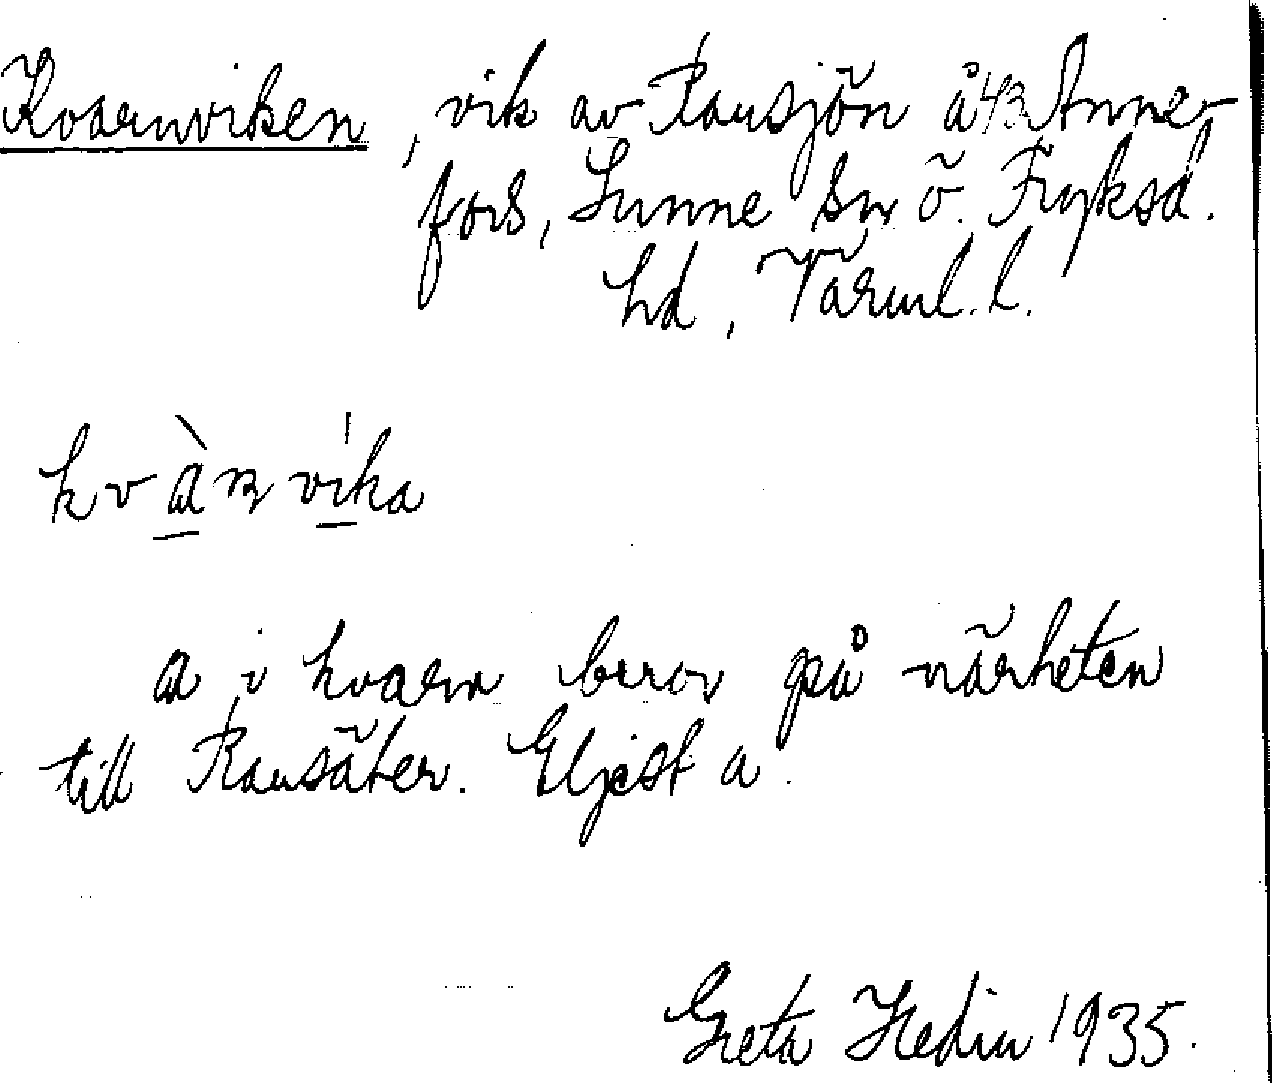 Kvarnviken, vik av Ransjön å 43 Anne-
fors, Sunne sn ö. Fryksd.
hd, Värml. l.
kvànvíka
a i kvarn beror på närheten
till Ransäter. Eljest a.
Greta Hedin 1935.